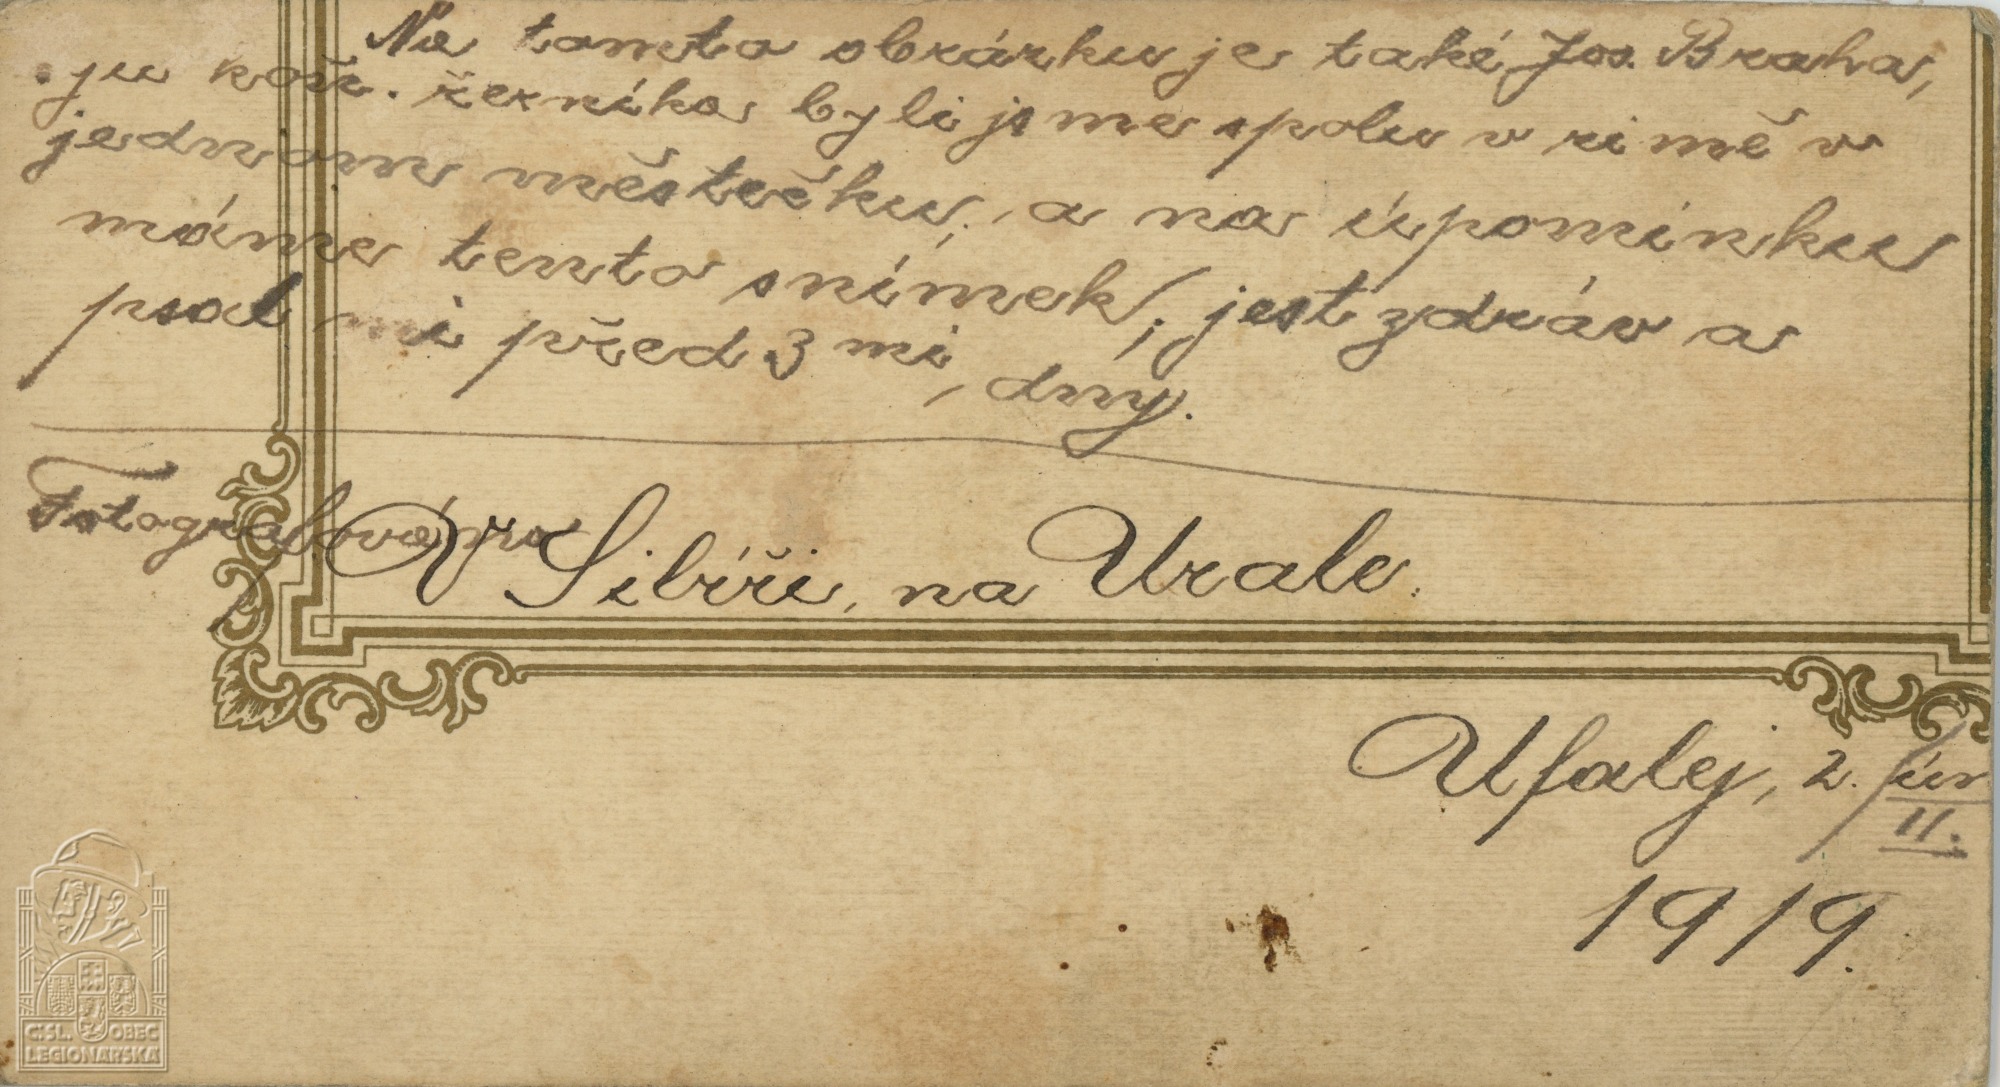 Na tomto obrázku je také Jos. Braha,
byli jsme spolu v zimě v
jednom městečku, a na úpomínku
máme tento snímek, jest zdráv a
psal mi před 3 mi, dny.
Fotografováno
V Sibíři, na Urale.
Ufalej, 2. /ún
II.
1919.
ČSL. OBEC
LEGIONÁŘSKÁ